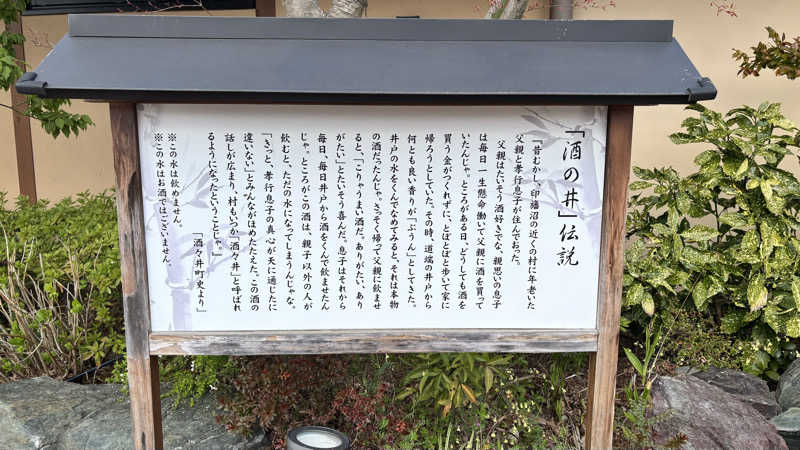 「酒の井」伝説
「昔むかし、印旛沼の近くの村に年老いた
父親と孝行息子が住んでおった。
父親はたいそう酒好きでな、親思いの息子
は毎日一生懸命働いて父親に酒を買って
いたんじゃ。ところがある日、どうしても酒を
買う金がつくれずに、とぼとぼと歩いて家に
帰ろうとしていた。その時、道端の井戸から
何とも良い香りが「ぷうん」としてきた。
井戸の水をくんでなめてみると、それは本物
の酒だったんじゃ。さっそく帰って父親に飲ませ
ると、「こりゃうまい酒だ。ありがたい、あり
がたい」とたいそう喜んだ。息子はそれから
毎日、毎日井戸から酒をくんで飲ませたん
じゃ。ところがこの酒は、親子以外の人が
飲むと、ただの水になってしまうんじゃな。
「きっと、孝行息子の真心が天に通じたに
違いない」とみんながほめたたえた。この酒の
話しが広まり、村もいつか「酒々井」と呼ばれ
るようになったということじゃ。」
「酒々井町史より」
※この水は飲めません。
※この水はお酒ではございません。